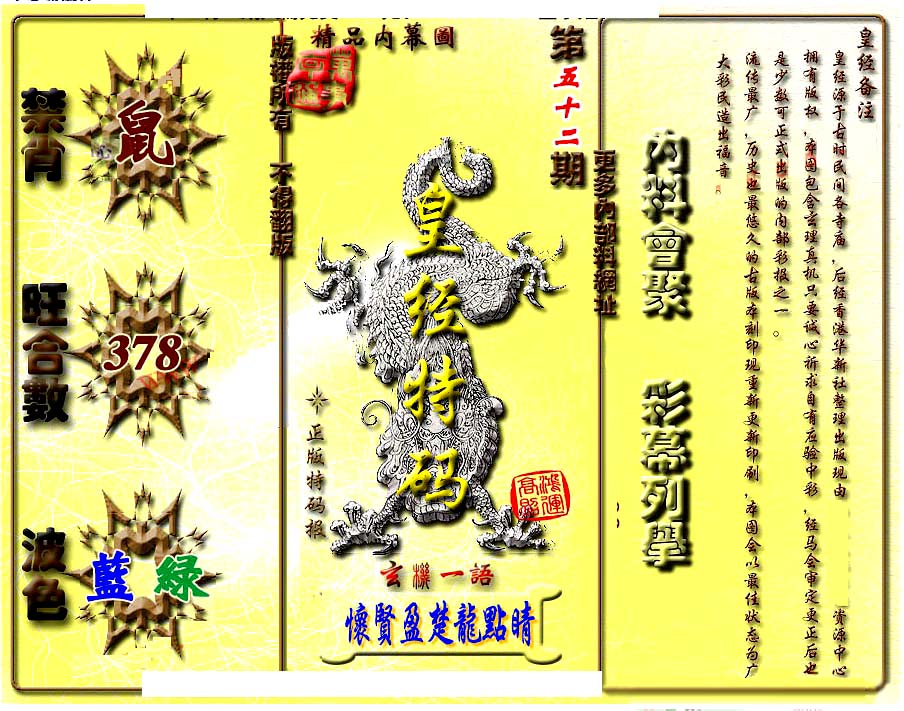 精品内幕圖
第五十二期
版權所有 不得翻版
更多内部料網址
禁肖
鼠
旺合數
378
波色
藍 綠
皇经特码
正版特码报
鴻運高照
玄機一語
懷賢盈楚龍點睛
内料會聚 彩幕列舉
皇经备注
皇经源于古时民间各寺庙,后经香港华新社整理出版现由 资源中心
拥有版权,本图包含玄理真机只要诚心祈求自有应验中彩,经马会审定更正后也
是少数可正式出版的内部彩报之一。
流传最广,历史也最悠久的古版本刻印现重新更新印刷,本图会以最佳状态为广
大彩民造出福音